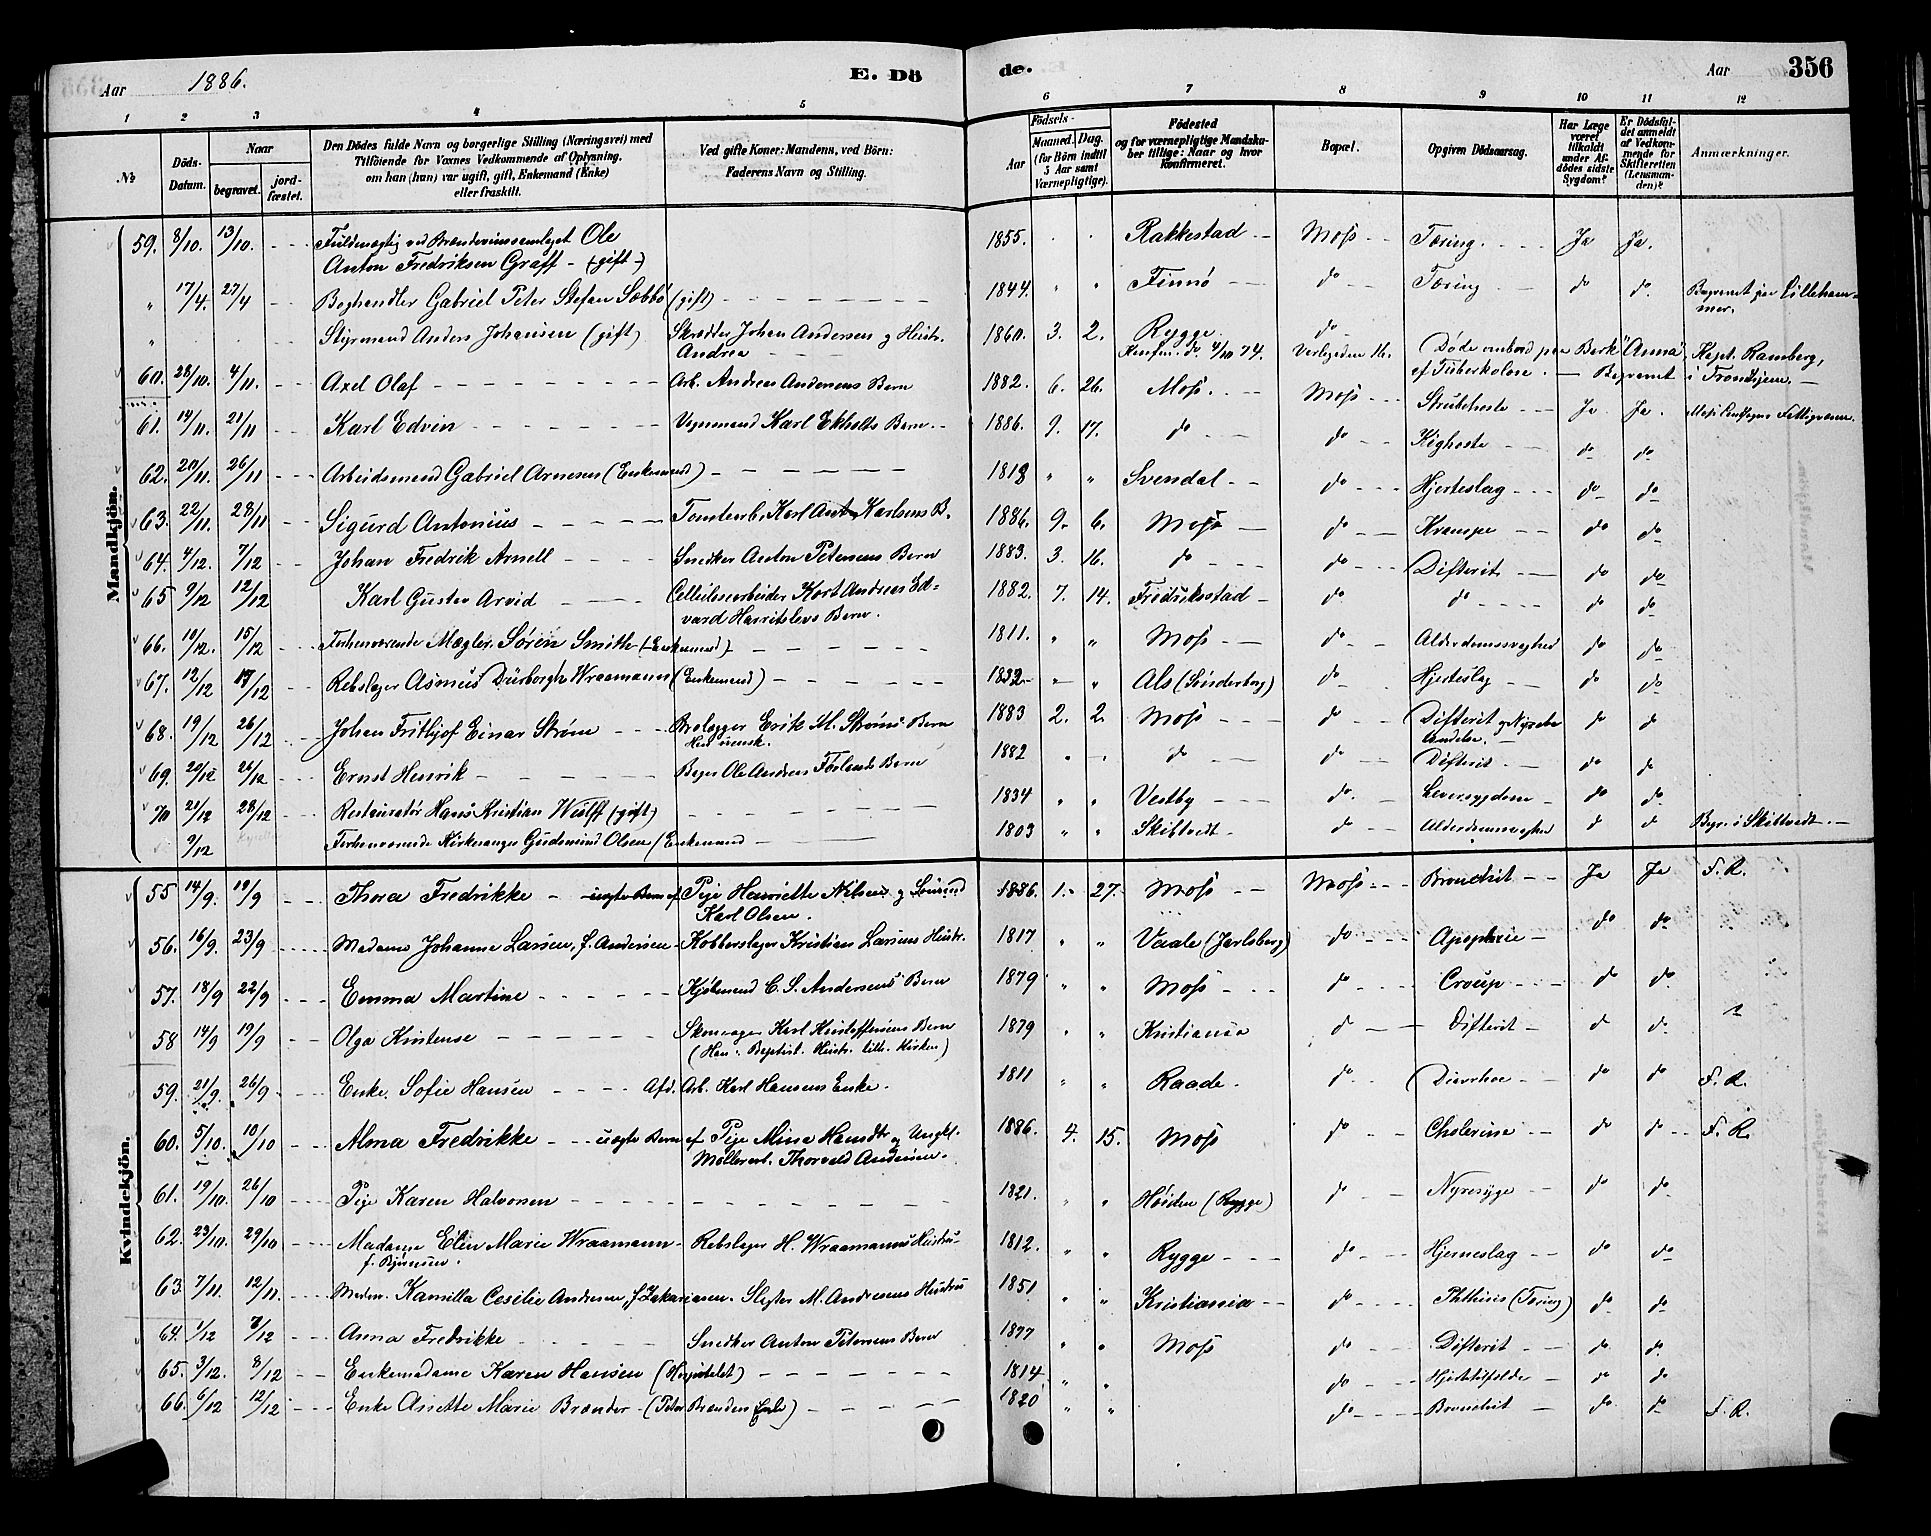 Aar 1886. E. Dö
de. Aar 356
1 2 3 4 5 6 7 8 9 10 11 12
№
Döds-Datum.
Naar begravet. jordfæstet.
Den Dödes fulde Navn og borgerlige Stilling (Næringsvei) med Tilföiende for Voxnes Vedkommende af Oplysning, om han (hun) var ugift, gift, Enkemand (Enke) eller fraskilt.
Ved gifte Koner: Mandens, ved Börn: Faderens Navn og Stilling.
Födsels-
Aar Maaned. Dag. (for Börn indtil 5 Aar samt Værnepligtige).
Födested og for værnepligtige Mandskaber tillige: Naar og hvor konfirmeret.
Bopæl.
Opgiven Dödsaarsag.
Har Læge været tilkaldt under Afdödes sidste Sygdom?
Er Dödsfaldet anmeldt af Vedkommende for Skifteretten (Lensmanden)?
Anmærkninger.
Mandkjön.
59. 8/10. 13/10. Fuldmægtig ved Brændevinssamlaget Ole Anton Fredriksen Graff - (gift) 1855. Rakkestad Moss Tæring. Ja Ja.
" 17/4. 27/4 Boghandler Gabriel Peter Stefan Sæbbø (gift) 1844. " " Finnø do Tæring do do. Begravet paa Lillehammer.
" Styrmand Anders Johansen (gift) Skrædder Johan Andersen og Hustr. Andrea 1860. 3. 2. Rygge. Konfm. do. 4/10 74. do Døde ombord paa Bark "Anna" Kapt. Ramberg, af Tuberkulose. Begravet i Trondhjem.
60. 28/10. 4/11. Axel Olaf Arb. Andreas Andersens Barn 1882. 6. 26. Moss. Moss Strubehoste Ja Ja.
61. 14/11. 21/11 Karl Edvin Vognmand Karl Ekholts Barn. 1886. 9. 17. do do Kighoste do do
62. 20/11. 26/11 Arbeidsmand Gabriel Arnesen (Enkemand) 1818 " " Svendal do Hjerteslag do do
63. 22/11. 28/11 Sigurd Antonius Tomtearb. Karl Ant. Karlsens B. 1886. 9. 6. Moss do Krampe do do
64. 4/12. 7/12 Johan Fredrik Arnell Snedker Anton Petersens Barn 1883. 3. 16. do do Difterit do do
65 9/12 12/12 Karl Gustav Arvid Cellulosearbeider Karl Andreas Edvard Harritslevs Barn. 1882. 7. 14. Fredriksstad do do do do
66. 10/12. 15/12 Forhenværende Mægler Sören Smith (Enkemand) 1811. " " Moss do Alderdomssvaghed do do
67. 12/12 19/12 Rebslager Asmus Dürborgh Wraamann (Enkemand) 1832 " " Als (Sönderborg) do Hjerteslag do do
68. 19/12 26/12 Johan Frithjof Einar Strøm Brolægger Erik M. Strøms Barn 1883 2. 2. Moss do Difterit og do do
69. 20/12 26/12 Ernst Henrik Bager Ole Andreas Førlands Barn 1882 " do do Difterit do do
70 21/12 28/12 Restauratør Hans Kristian Wulff (gift) 1834 " " Vestby do. Leversygdom do do
9/12 Forhenværende Kirkesanger Gudmund Olsen (Enkemand 1803 " " Skibtvedt do Alderdomssvaghed do do Begr. i Skibtvedt.
Kvindekjön.
55 14/9. 19/9 Thora Fredrikke - uægte Barn af Pige Henriette Nilsen og Karl Olsen. 1886. 1. 27. Moss Moss Bronchit Ja Ja F. R.
56. 16/9. 23/9 Madame Johanne Larsen, f. Andersen Kobberslager Kristian Larsens Hustr. 1817 " " Vaale (Jarlsberg) do Apoplexie do do
57. 18/9 22/9 Emma Martine Kjøbmand C. S. Andersens Barn 1879 " " Moss do Croup do do
58 14/9 19/9 Olga Kristense Skomager Karl Kristoffersens Barn (Han: Baptist. Hustr. till. Kirken) 1879 " " Kristiania do Difterit do do
59. 21/9. 26/9 Enke Sofie Hansen Afd. Arb. Karl Hansens Enke. 1811 " " Raade. do Diarrhoe do do F. R.
60. 5/10. 10/10 Alma Fredrikke uægte Barn af Pige Mina Handt og Ungkl. Møllerarb. Thorvald Andersen. 1886. 4. 15. Moss do Cholerine do do F. R.
61. 19/10. 26/10 Pige Karen Halvorsen 1821. " " Høiden (Rygge) do Nyresyge do do
62. 23/10. 29/10 Madame Elin Marie Wraamann f. Bjørnsen. Rebslager H. Wraamanns Hustru 1812. " " Rygge do Hjerneslag do do
63. 7/11. 12/11. Madm. Kamilla Cesilie Andresen, f. Zakariasen. Slagter M. Andresens Hustru 1851 " " Kristiania do Phthisis (Tæring) do do
64. 1/12 7/12 Anna Fredrikke Snedker Anton Petersens Barn 1877 " " Moss do Difterit do do
65. 3/12. 8/12 Enkemadame Karen Hansen (Hospitalet) 1814 " " do do do
66. 6/12 12/12 Enke Anette Marie Brænder - (Peter Brænders Enke) 1820 " " do Bronchit do do F. R.